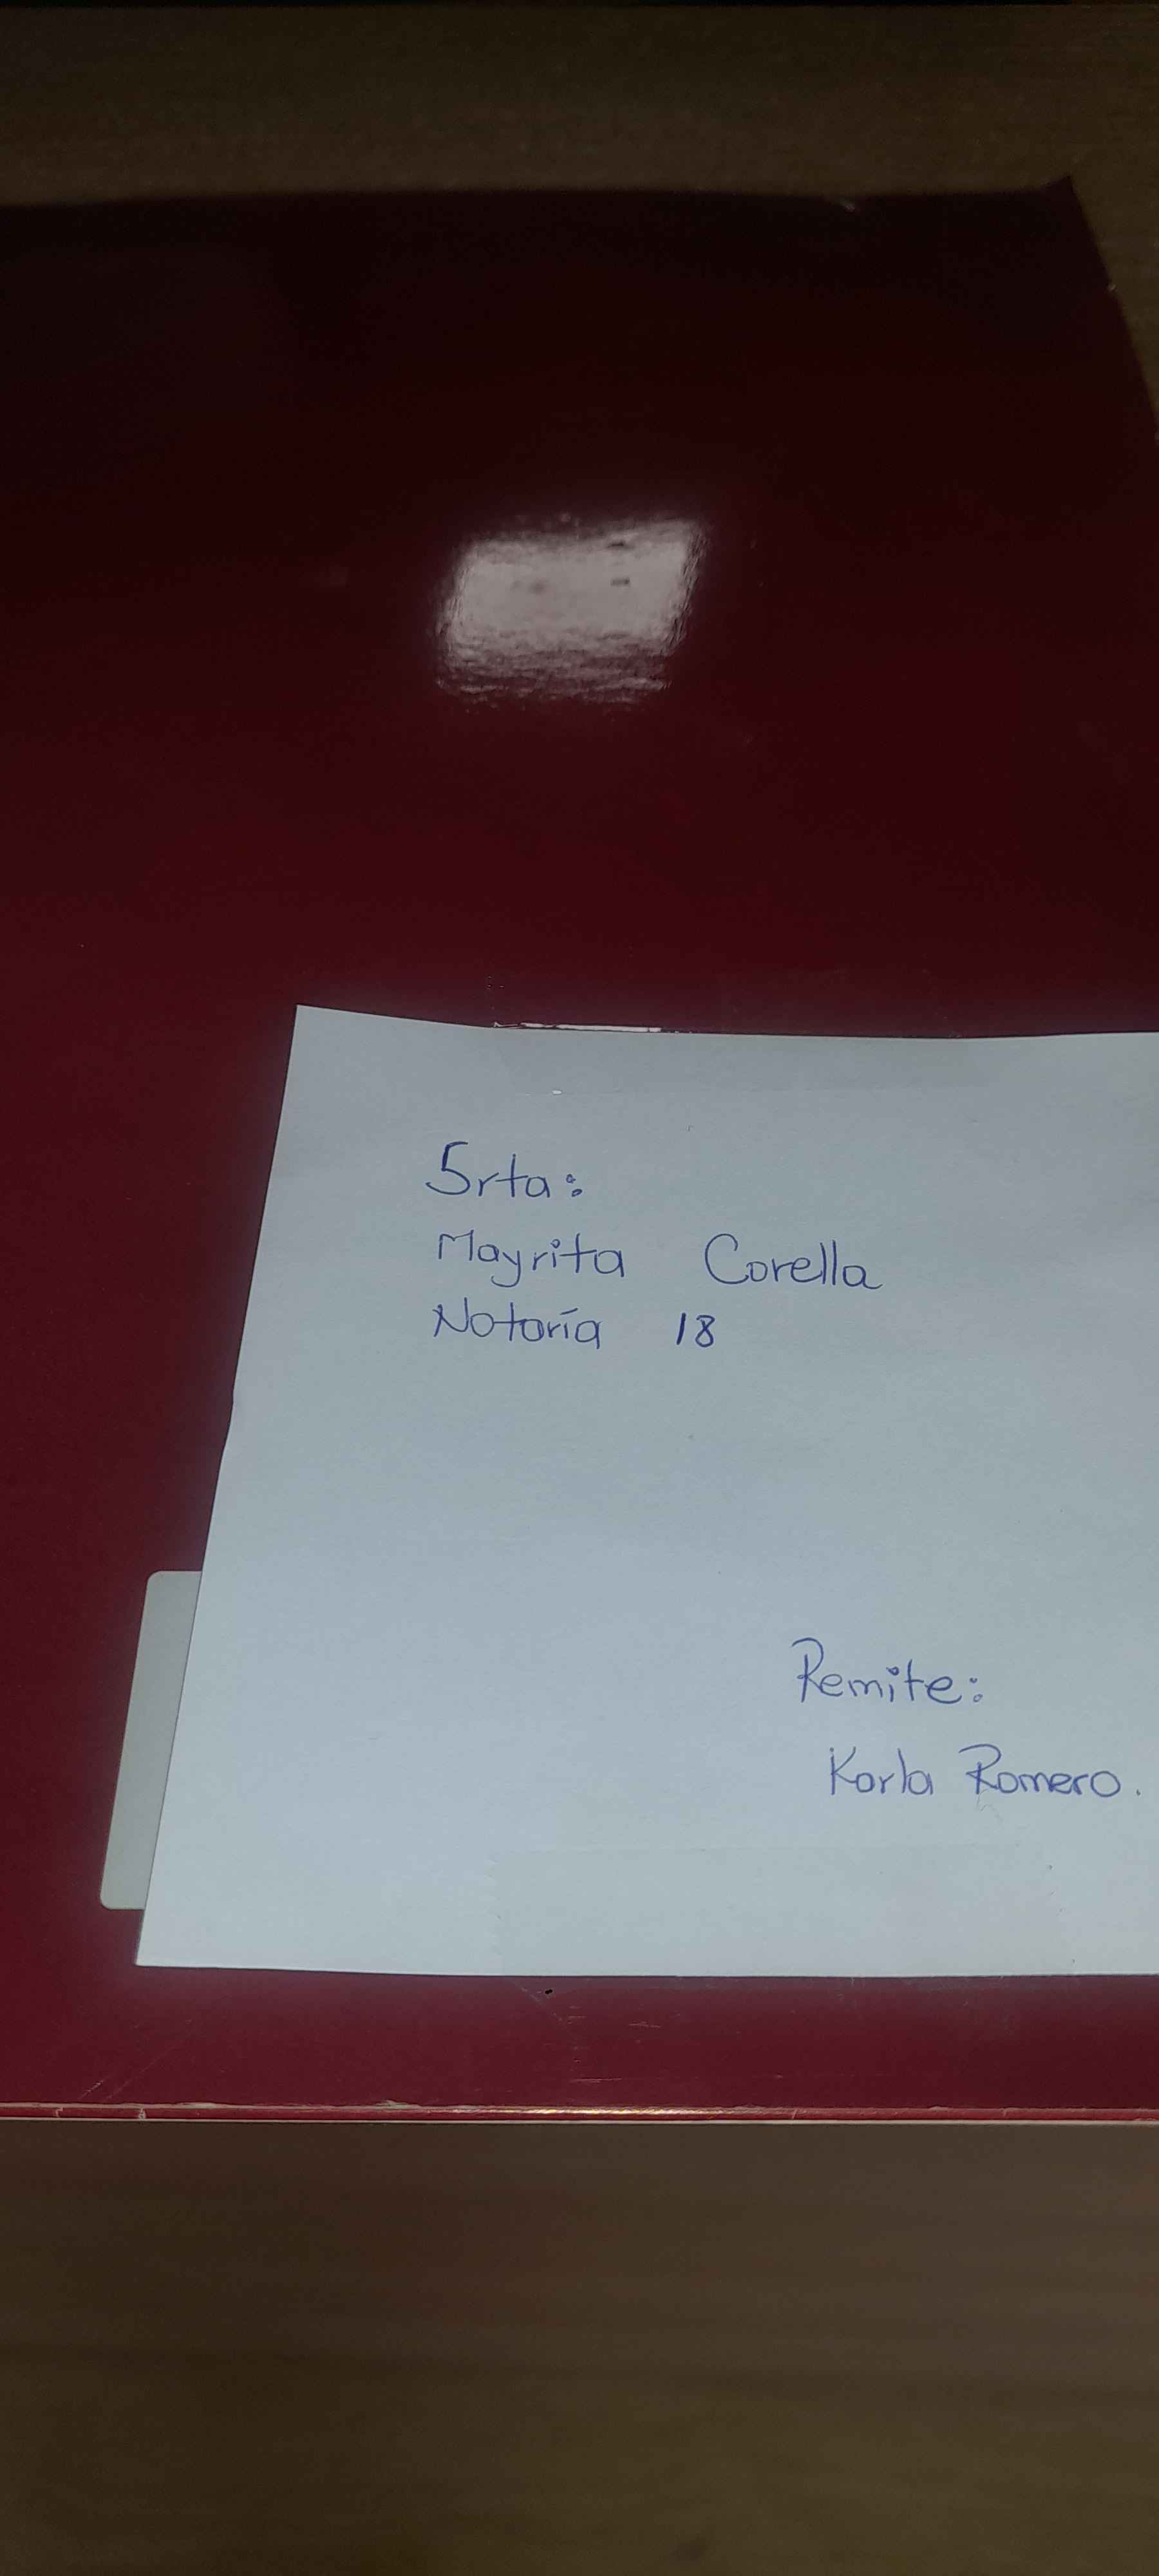 Srta:
Mayrita Corella
Notaría 18
Remite:
Karla Romero.